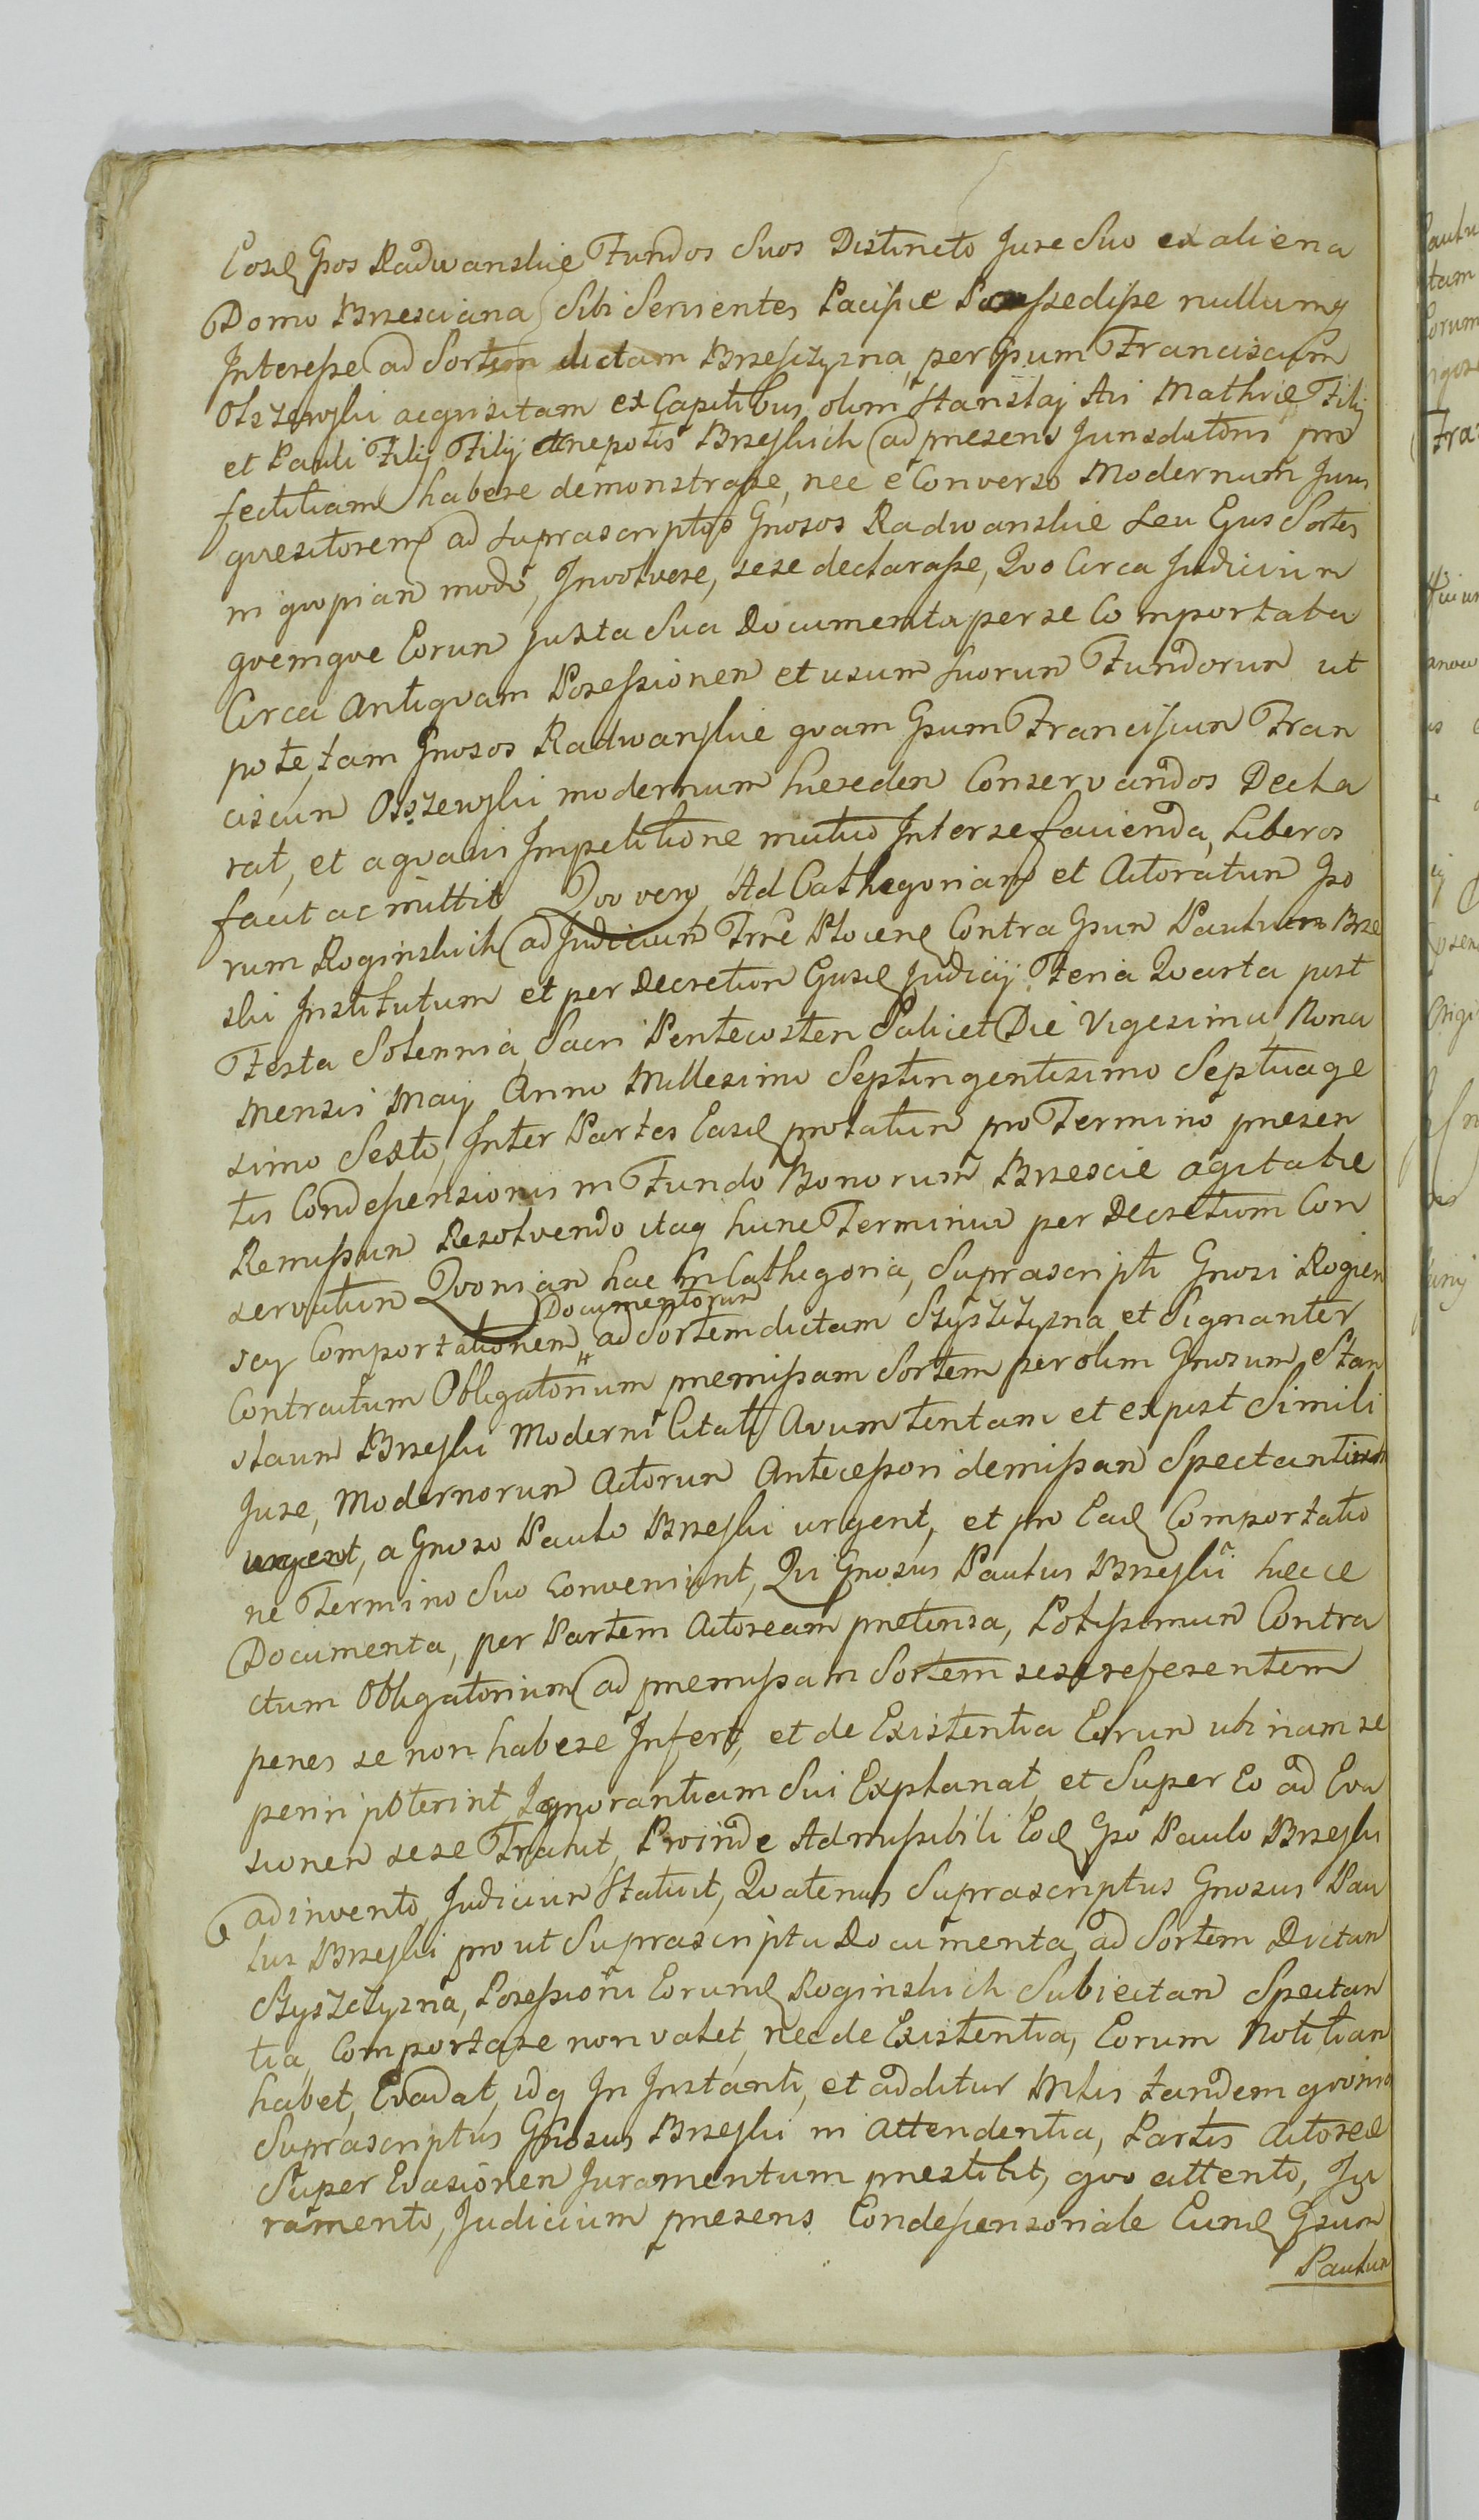 Eosd Gsos Radwanskie Fundos Suos Distincto Jure Suo ex aliena
Domo Brzesciana Sibi Servientes Pacifice Possedisse nullumq
Interesse ad Sortem dictam Brzeszczyzna per Gsum Franciscum
Olszewski acquisitam ex Capitibus olim Stanislaj Avi Mathiæ Filij
et Pauli Filij Filij et nepotis Brzeskich ad præsens Jurisdictoris pro
fectitiam habere demonstrasse, nec e Converso Modernum Juris
quæsitorem ad suprascriptos Gnosos Radwanskie Seu Ejus Sortes
in quopian modo, Involvere, sese declarasse, Quo Circa Judicium
quemque Eorum Juxta Sua Documenta per se Comportata
Circa Antiquam Possessionem et usum Suorum Fundorum ut
pote, tam Gnosos Radwanskie quam Gsum Franciscum Fran
ciscum Olszewski modernum hæredem Conservandos Decla
rat, et a quavis Impetitione mutuo Inter se facienda, Liberos
facit ac mittit Quo vero Ad Cathegoriam et Actoratum Gso
rum Roginskich ad Judicium Trre Plocene Contra Gsum Paulum Brze
ski Institutum et per Decretum Ejusd Judicij Feria Quarta post
Festa Solennia Sacri Pentecosten Scilicet Die Vigesima Nona
Mensis Maij Anno Millesimo Septingentesimo Septuage
simo Sexto, Inter Partes Easd prolatum pro Termino præsen
tis Condescensionis in Fundo Bonorum Brzescie agitatæ
Remissum Resolvendo itaq hunc Terminum per Decretum Con
servatum Quoniam hac in Cathegoria, Suprascripti Gnosi Rogien
Documentorum
scy Comportationem ad Sortem dictam Szyszczyzna et Signanter
Contractum Obligatorium præmissam Sortem per olim Gnosum Stan
slaum Brzeski Moderni Citati Avum tentam et expost Simili
Jure, Modernorum Actorum Antecessori demissam Spectantium
urgent, a Gnoso Paulo Brzeski urgent, et pro Ead Comportatio
ne Termino Suo Conveniunt, Qui Gnosus Paulus Brzeski hæcce
Documenta, per Partem Actoream prætensa, Potissimum Contra
ctum Obligatorium ad præmissam Sortem sese referentem
penes se non habere Infert, et de Existentia Eorum ubinam re
periri poterint Ignorantiam Sui Explanat, et Super Eo ad Eva
sionem sese Trahit, Proinde Admissibili Eod Gso Paulo Brzeski
adinvento, Judicium Statuit, Quatenus Suprascriptus Gnosus Pau
lus Brzeski prout Suprascripta Documenta, ad Sortem Dictam
Szyszczyzna, Possessioni Eorund Roginskich Subiectam Spectan
tia, Comportare non valet, nec de Existentia, Eorum Notitiam
habet, Evadat, idq In Instanti, et additur Mtis tandem quoniam
Suprascriptus Gnosus Brzeski in Attendentia, Partis Actoreæ
Super Evasionem Juramentum præstitit, quo attento, Ju
ramento, Judicium præsens Condescensoriale Eund Gsum
Paulum